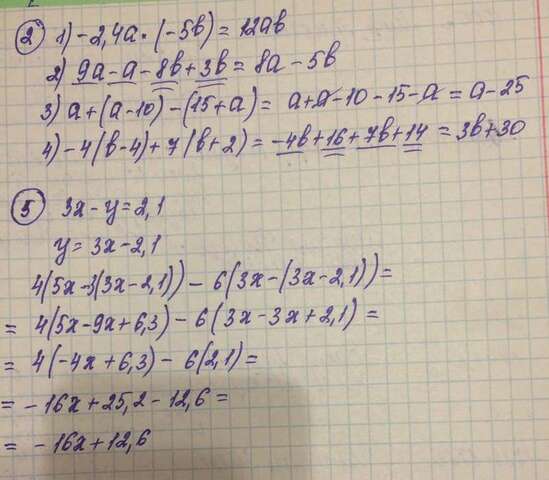 2 1) -2,4a·(-5b) = 12ab
2) 9a-a-8b+3b = 8a-5b
3) a+(a-10)-(15+a) = a+a-10-15-a = a-25
4) -4(b-4)+7(b+2) = -4b+16+7b+14 = 3b+30
5 3x-y=2,1
y=3x-2,1
4(5x-3(3x-2,1)) - 6(3x-(3x-2,1)) =
= 4(5x-9x+6,3) - 6(3x-3x+2,1) =
= 4(-4x+6,3) - 6(2,1) =
= -16x+25,2-12,6 =
= -16x+12,6